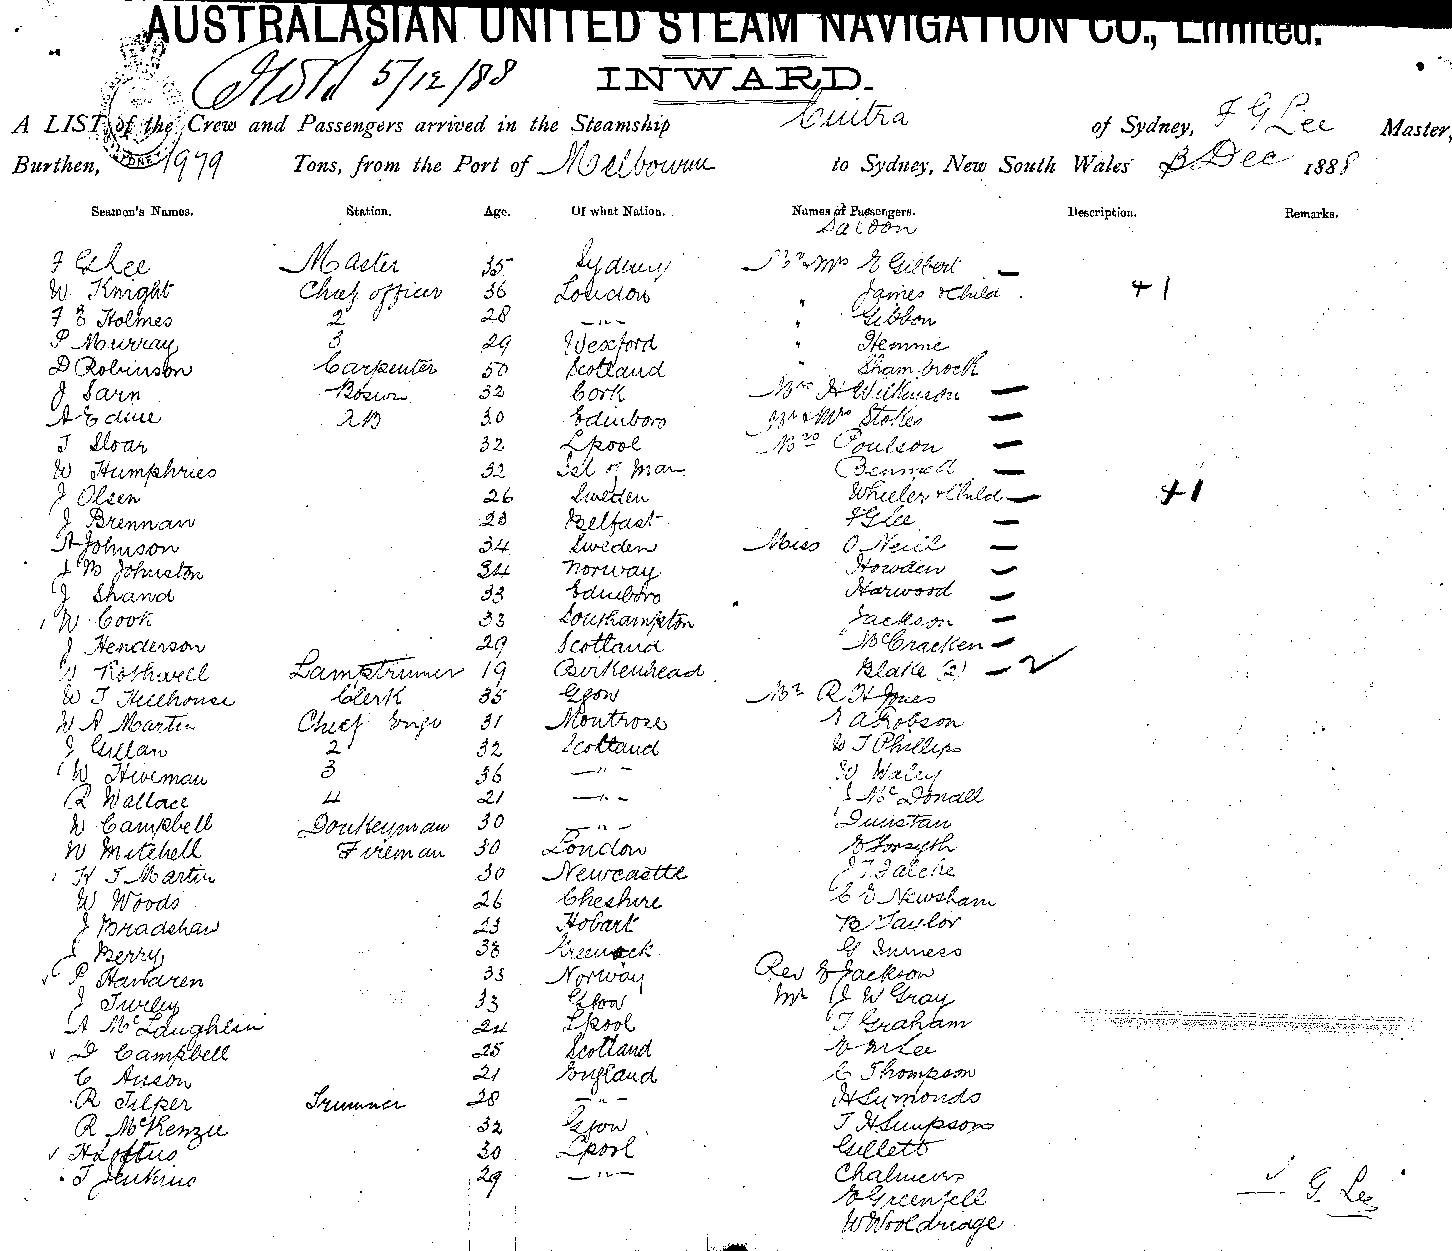 AUSTRALASIAN UNITED STEAM NAVIGATION CO., Limited.
5/12/88
INWARD.
A LIST of the Crew and Passengers arrived in the Steamship Cuitra of Sydney, F G Lee Master,
Burthen, 1979 Tons, from the Port of Melbourne to Sydney, New South Wales 3 Dec 1888
Seamen's Names. Station. Age. Of what Nation. Names of Passengers. Description. Remarks.
Saloon
F G Lee Master 35 Sydney Mr & Mrs E Gilbert —
W Knight Chief officer 36 London " James & Child +1
F E Holmes 2 28 —"— " Gibbon
P Murray 3 29 Wexford " Hemme
D Robinson Carpenter 50 Scotland " Shambrock
J Sarn Bosun 32 Cork Mrs H Wilkinson —
A Edine 2B 30 Edinboro Mr & Mrs Stokes —
T Sloar 32 Lpool Mrs Poulson —
W Humphries 32 Isl of Man Bennett —
J Olsen 26 Sweden Wheeler & Child — +1
J Brennan 23 Belfast F G Lee —
A Johnson 34 Sweden Miss O'Neill —
J B Johnston 34 Norway Howden —
J Shand 33 Edinboro Harwood —
W Cook 33 Southampton Jackson —
J Henderson 29 Scotland McCracken —
Rothwell Lamptrimer 19 Birkenhead Blake (2) — 2
W T Hillhouse Clerk 35 Gsgow Mr R H Jones
W A Martin Chief Engr 31 Montrose A Robson
J Gillan 2 32 Scotland W T Phillips
W Hiveman 3 36 —"— W Waley
R Wallace 4 21 —"— J McDonall
W Campbell Donkeyman 30 —"— Dunstan
W Mitchell Fireman 30 London E Forsyth
H J Martin 30 Newcastle J T Falche
W Woods 26 Cheshire C E Newsham
J Bradshaw 23 Hobart B Taylor
J Berry 38 Greenock G Inness
P Havaren 33 Norway Rev E Jackson
J Turley 33 Gsgow Mr J W Gray
A McLaughlin 24 Lpool T Graham
D Campbell 25 Scotland E M Lee
C Anson 21 England C Thompson
R Tilper Trimmer 28 —"— H Simonds
R McKenzie 32 Gsgow T H Simpsons
H Loftus 30 Lpool Gillett
T Jenkins 29 —"— Chalmers
E Greenfell
W Wooldridge
G. Lee